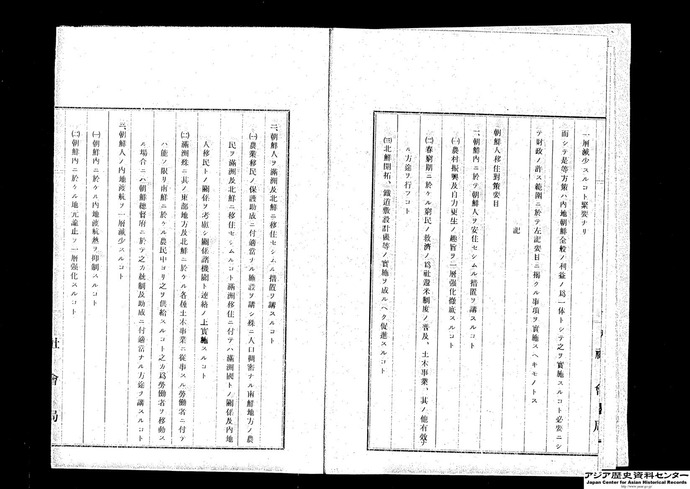 一層減少スルコト緊要ナリ
而シテ是等方策ハ内地朝鮮全般ノ利益ノ為一体トシテ之ヲ實施スルコト必要ニシ
テ財政ノ許ス範圍ニ於テ左記要目ニ掲クル事項ヲ實施スヘキモノトス
記
朝鮮人移住對策要目
一、朝鮮内ニ於テ朝鮮人ヲ安住セシムル措置ヲ講スルコト
(一)農村振興及自力更生ノ趣旨ヲ一層强化徹底スルコト
(二)春窮期ニ於ケル窮民ノ救濟ノ爲社還米制度ノ普及、土木事業、其ノ他有效ナ
ル方途ヲ行フコト
(三)北鮮開拓、鐵道敷設計畫等ノ實施ヲ成ルヘク促進スルコト
二、朝鮮人ヲ滿洲及北鮮ニ移住セシムル措置ヲ講スルコト
(一)農業移民ノ保護助成ニ付適當ナル施設ヲ講シ殊ニ人口稠密ナル南鮮地方ノ農
民ヲ滿洲及北鮮ニ移住セシムルコト滿洲移住ニ付テハ滿洲國トノ關係及内地
人移民トノ關係ヲ考慮シ關係諸機關ト連絡ノ上實施スルコト
(二)滿洲殊ニ其ノ東部地方及北鮮ニ於ケル各種土木事業ニ從事スル勞働者ニ付テ
ハ能フ限リ南鮮ニ於ケル農民中ヨリ之ヲ供給スルコト之カ爲勞働者ヲ移動ス
ル場合ニハ朝鮮總督府ニ於テ之カ統制及助成ニ付適當ナル方途ヲ講スルコト
三、朝鮮人ノ内地渡航ヲ一層減少スルコト
(一)朝鮮内ニ於ケル内地渡航熱ヲ抑制スルコト
(二)朝鮮内ニ於ケル地元諭止ヲ一層强化スルコト
社會局
アジア歴史資料センター
Japan Center for Asian Historical Records